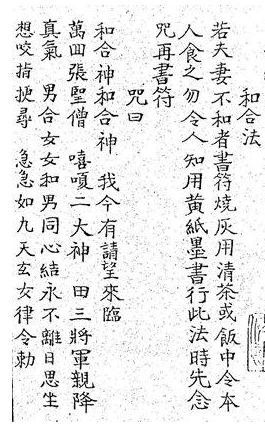 和合法
若夫妻不和者書符燒灰用清茶或飯中令本
人食之勿令人知用黄紙墨書行此法時先念
咒再書符
咒曰
和合神和合神 我今有請望來臨
萬回張聖僧 嘻嗄二大神 田三將軍親降
真氣 男合女女和男同心結永不離日思生
想咬指挭尋 急急如九天玄女律令勅